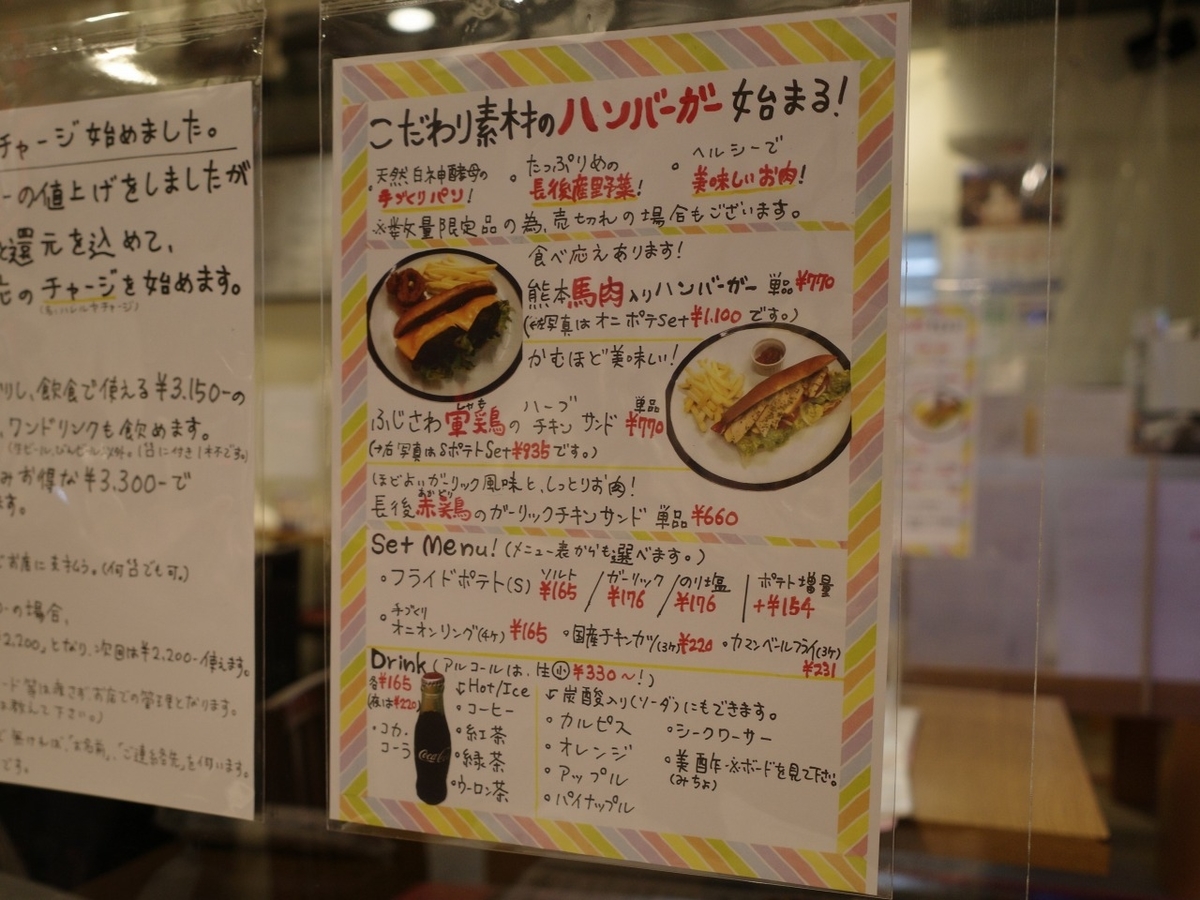 チャージ始めました。
ーの値上げをしましたが
還元を込めて、
のチャージを始めます。
飲食で使える¥3.150-の
ワンドリンクも飲めます。
お得な¥3.300-で
ます。
お店に支払う。(何名でも可。)
の場合、
2,200」となり、次回は¥2,200-使えます。
お店での管理となります。
教えて下さい。)
無ければ、「お名前」、「ご連絡先」を伺います。
です。
こだわり素材のハンバーガー始まる!
。天然白神酵母の
手づくりパン!
。たっぷりめの
長後産野菜!
。ヘルシーで
美味しいお肉!
※数数量限定品の為、売切れの場合もございます。
食べ応えあります!
熊本馬肉入りハンバーガー 単品¥770
(←左写真はオニポテSet¥1.100です。)
かむほど美味い!
ふじさわ軍鶏のハーブチキンサンド 単品¥770
しゃも
(→右写真はSポテトSet¥935です。)
ほどよいガーリック風味と、しっとりお肉!
長後赤鶏のガーリックチキンサンド 単品¥660
あかどり
Set Menu!(メニュー表からも選べます。)
。フライドポテト(S) ソルト¥165/ガーリック¥176/のり塩¥176|ポテト増量+¥154
。手づくりオニオンリング(4ケ)¥165 。国産チキンカツ(3ケ)¥220 。カマンベールフライ(3ケ)¥231
Drink(アルコールは、生小¥330～!)
各¥165
(夜は¥220)
・コカ・コーラ
Coca-Cola
↙Hot/Ice
。コーヒー
。紅茶
。緑茶
。ウーロン茶
↙炭酸入り(ソーダ)にもできます。
。カルピス
。オレンジ
。アップル
。パイナップル
。シークワーサー
。美酢-※ボードを見て下さい
(みちょ)